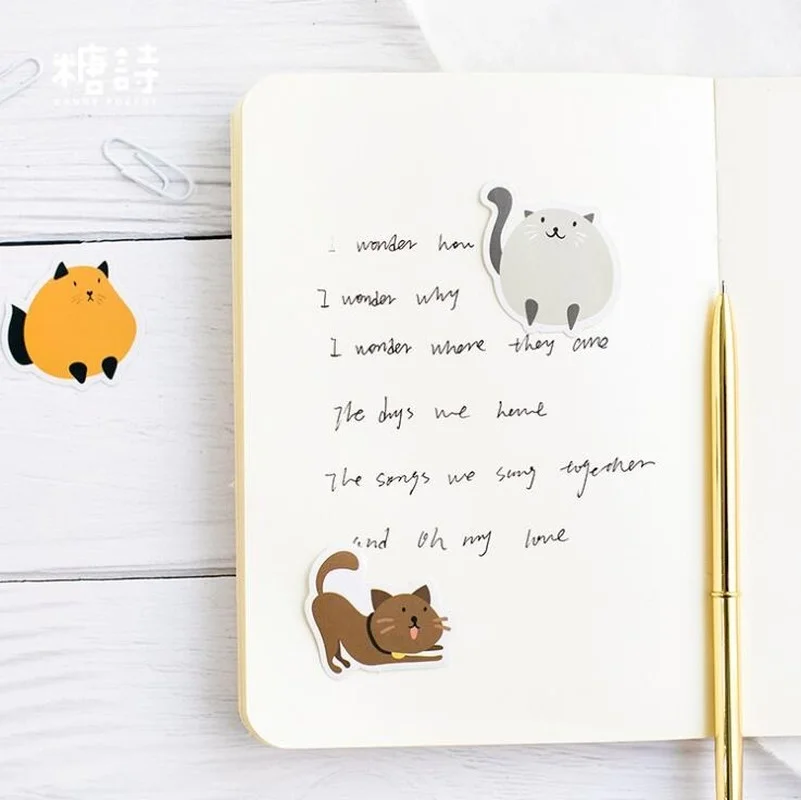 糖詩
CANDY POETRY
I wonder how
I wonder why
I wonder where they are
The days we have
The songs we sang together
and oh my love